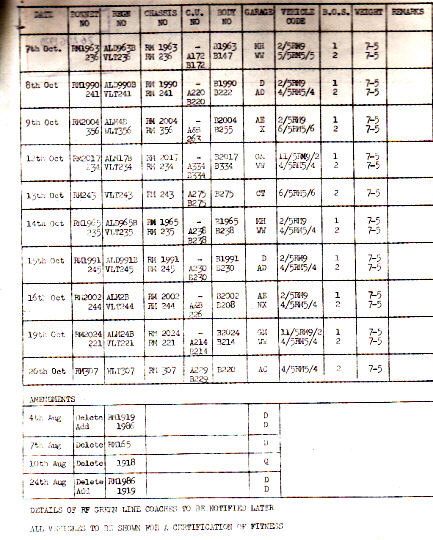 DATE BONNET NO REGN NO CHASSIS NO C.U. NO BODY NO GARAGE VEHICLE CODE B.O.S. WEIGHT REMARKS
7th Oct. RM1963 ALD963B RM 1963 - B1963 HH 2/5RM9 1 7-5
236 VLT236 RM 236 A172 B147 WW 5/5RM5/5 2 7-5
B172
8th Oct RM1990 ALD990B RM 1990 - B1990 D 2/5RM9 1 7-5
241 VLT241 RM 241 A220 B222 AD 4/5RM5/4 2 7-5
B220
9th Oct RM2004 ALM4B RM 2004 - B2004 AE 2/5RM9 1 7-5
356 VLT356 RM 356 B255 X 6/5RM5/6 2 7-5
263
12th Oct RM2017 ALM17B RM 2017 - B2017 GM 11/5RM9/2 1 7-5
234 VLT234 RM 234 A334 B334 WW 4/5RM5/4 2 7-5
B334
13th Oct RM243 VLT243 RM 243 A275 B275 CT 6/5RM5/6 2 7-5
B275
14th Oct RM1965 ALD965B RM 1965 - B1965 HH 2/5RM9 1 7-5
235 VLT235 RM 235 A238 B238 WW 4/5RM5/4 2 7-5
B238
15th Oct RM1991 ALD991B RM 1991 - B1991 D 2/5RM9 1 7-5
245 VLT245 RM 245 A230 B230 AD 4/5RM5/4 2 7-5
B230
16th Oct RM2002 ALM2B RM 2002 - B2002 AE 2/5RM9 1 7-5
244 VLT244 RM 244 B208 NX 4/5RM5/4 2 7-5
19th Oct RM2024 ALM24B RM 2024 - B2024 GM 11/5RM9/2 1 7-5
221 VLT221 RM 221 A214 B214 WW 4/5RM5/4 2 7-5
B214
20th Oct RM307 WLT307 RM 307 A229 B220 AC 4/5RM5/4 2 7-5
B229
AMENDMENTS
4th Aug Delete RM1919 D
Add 1986 D
7th Aug Delete RM165
10th Aug Delete 1918 Q
24th Aug Delete RM1986 D
Add 1919 D
DETAILS OF RF GREEN LINE COACHES TO BE NOTIFIED LATER
ALL VEHICLES TO BE SHOWN FOR A CERTIFICATION OF FITNESS